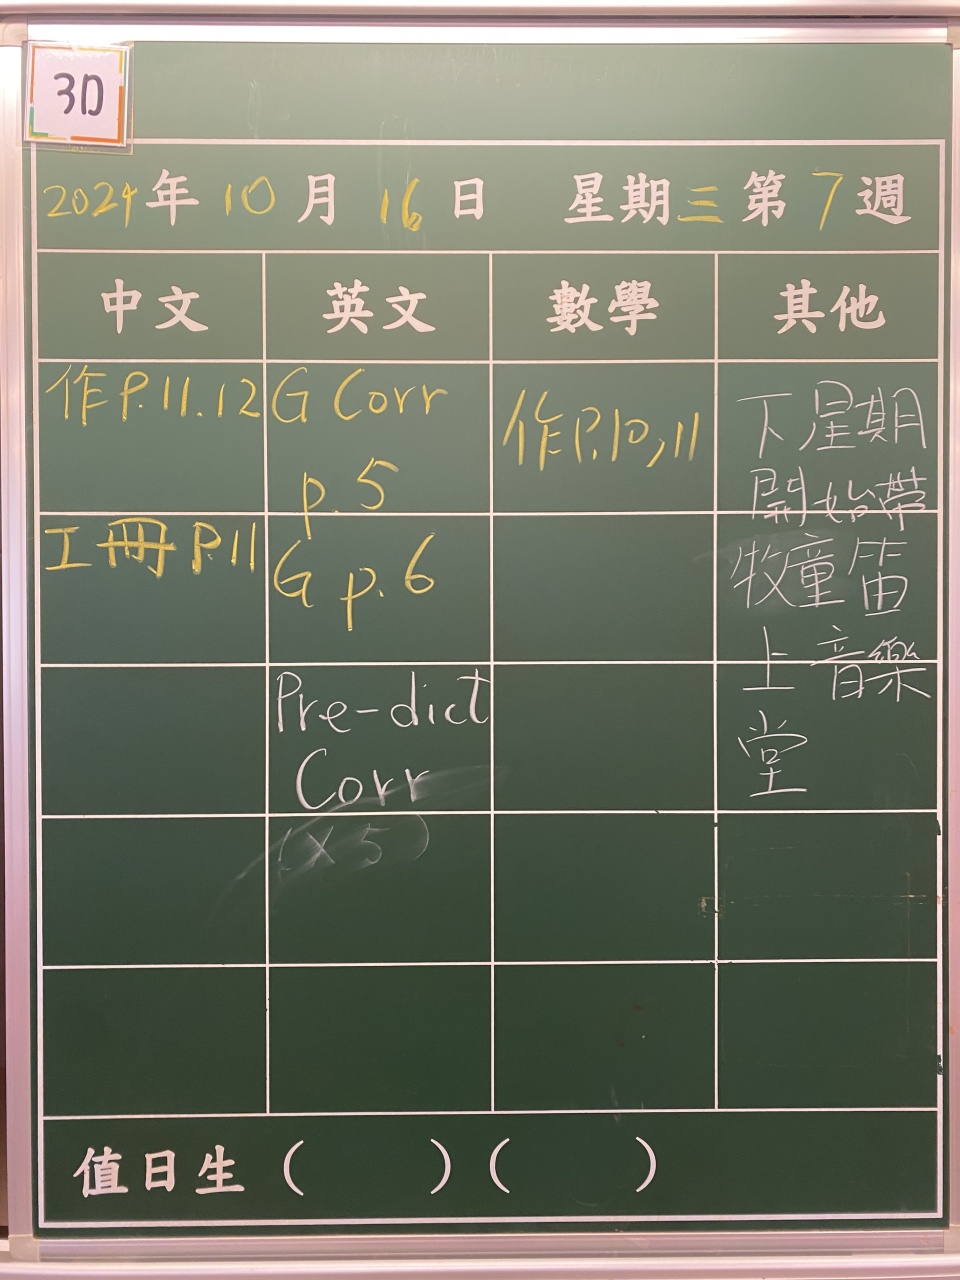 3D
2024年10月16日 星期三第7週
中文 英文 數學 其他
作P.11.12
工冊P.11
G Corr
p.5
G p.6
Pre-dict
Corr
(×5)
作P.10,11
下星期
開始帶
牧童笛
上音樂
堂
值日生( )( )